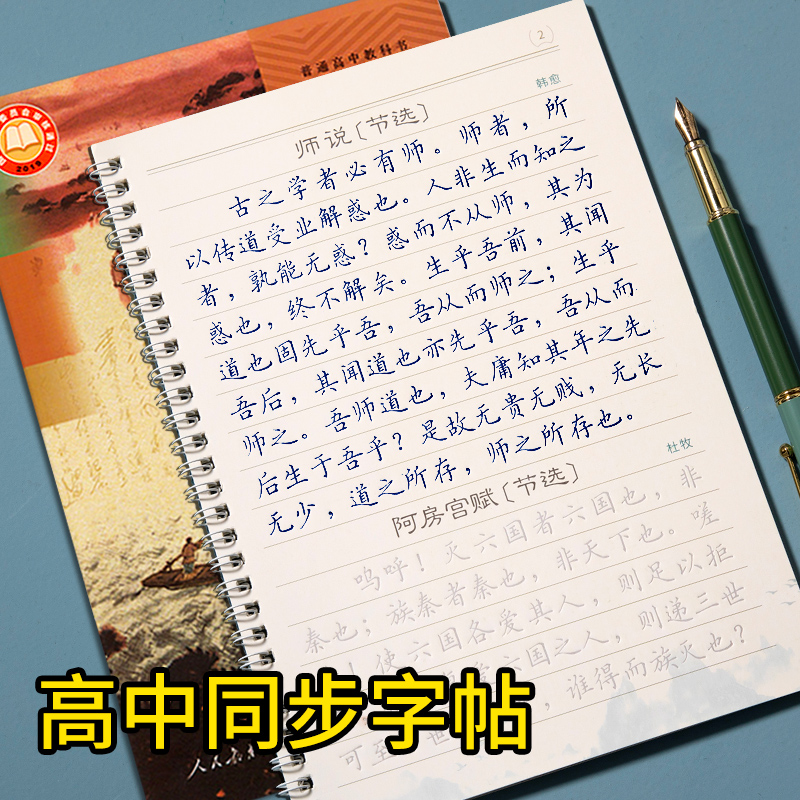 普通高中教科书
2019
2
师说〔节选〕
韩愈
古之学者必有师。师者，所
以传道受业解惑也。人非生而知之
者，孰能无惑？惑而不从师，其为
惑也，终不解矣。生乎吾前，其闻
道也固先乎吾，吾从而师之；生乎
吾后，其闻道也亦先乎吾，吾从而
师之。吾师道也，夫庸知其年之先
后生于吾乎？是故无贵无贱，无长
无少，道之所存，师之所存也。
阿房宫赋〔节选〕
杜牧
呜呼！灭六国者六国也，非
秦也；族秦者秦也，非天下也。嗟
！使六国各爱其人，则足以拒
六国之人，则递三世
可至 世 ，谁得而族灭也？
高中同步字帖
人民教